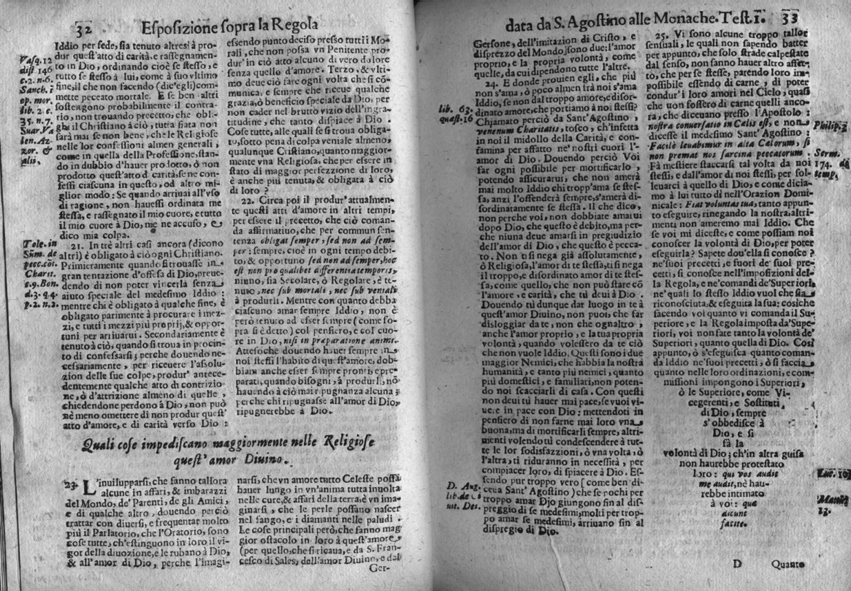 32 Esposizione sopra la Regola
Iddio per fede, sia tenuto altresì à pro-
dur quest'atto di carità, e rassegnamen-
to in Dio, ordinando cioè se stesso, e
tutto se stesso à lui, come à suo vltimo
fine, il che non facendo (dic'egli) com-
mette peccato mortale. E se ben altri
sostengono probabilmente il contra-
rio, non trouando precetto, che obli-
ghi il Christiano à ciò, tuttauia non
sarà mai se non bene, che le Religiose
nelle lor confessioni almen generali,
come in quella della Professione, stan-
do in dubbio d'hauer po loro, ò non
prodotto quest'atto di carità, se ne con-
fessi ciascuna in questo, od altro mi-
glior modo: Se quando arriuai all'vso
di ragione, non hauessi ordinata me
stessa, e rassegnato il mio cuore, e tutto
il mio cuore à Dio, me ne accuso, e
dico mia colpa.
21. In trè altri casi ancora (dicono
altri) è obligato à ciò ogni Christiano.
Primieramente quando si trouasse in
gran tentazione d'offesa di Dio, preue-
dendo di non poter vincerla senza
aiuto speciale del medesimo Iddio:
mentre chi è obligato à qualche fine, è
obligato parimente à procurare i mez-
zi, e tutti i mezzi più proprij, & oppor-
tuni per arriuarui. Secondariamente è
tenuto à ciò, quando si troua in procin-
to di confessarsi; perche douendo ne-
cessariamente, per riceuer l'assolu-
zion delle sue colpe, produr' antece-
dentemente qualche atto di contrizio-
ne, ò d'attrizion almeno di quelle,
chiedendone perdono à Dio, non può
nè meno omettere di non produr quest'
atto d'amore, e di carità verso Dio:
essendo punto deciso presso tutti i Mo-
rali, che non possa vn Penitente pro-
dur' in ciò atto alcuno di vero dolore
senza quello d'amore. Terzo, & vlti-
mo deue ciò fare ogni volta che si co-
munica, e sempre che riceue qualche
grazia, ò beneficio speciale da Dio: per
non cader nel brutto vizio dell'ingra-
titudine, che tanto dispiace à Dio.
Cose tutte, alle quali se si troua obliga-
to, sotto pena di colpa veniale almeno,
qualunque Cristiano, quanto maggior-
mente vna Religiosa, che per essere in
stato di maggior perfezzione di loro,
è anche più tenuta, & obligata à ciò
di loro?
22. Circa poi il produr' attualmen-
te questi atti d'amore in altri tempi,
per essere il precetto, che ciò coman-
da affirmatiuo, che per commun sen-
tenza obligat semper, sed non ad sem-
per: cioè in ogni tempo debi-
to, & opportuno sed non ad semper, hoc
est non pro qualibet differentia temporis,
niuno, sia Secolare, ò Regolare, è te-
nuto, nec sub mortali, nec sub veniali
à produrli. Mentre con quanto debba
ciascuno amar sempre Iddio, non è
però tenuto ad esser sempre (come so-
pra si è detto) col pensiero, e col cuo-
re in Dio, nisi in praeparatione animi.
Attesoche douendo hauer sempre in
noi stessi l'habito di quest'amore, dob-
biam anche esser sempre pronti, e pre-
parati, quando bisogni, à produrli, nò
hauendo à ciò mai ripugnanza alcuna,
perche chi ripugnasse all'amor di Dio,
ripugnerebbe à Dio.
Quali cose impediscano maggiormente nelle Religiose
quest' amor Diuino.
23. L'inuilupparsi, che fanno tallora
alcune in affari, & imbarazzi
del Mondo, de' Parenti, de gli Amici,
e di qualche altro, douendo perciò
trattar con diuersi, e frequentar molto
più il Parlatorio, che l'Oratorio, sono
cose tutte, ch'estinguono in loro il vi-
gor della diuozione, e le rubano à Dio,
& all'amor di Dio, perche l'imagi-
narsi, che vn amore tutto Celeste possa
hauer lungo in vn'anima tutta inuolta
nelle cure, & affari della terra, è vn ima-
ginarsi, che le perle possano nascer
nel fango, e i diamanti nelle paludi.
Le cose principali però, che fanno mag-
gior ostacolo in loro à quest'amore,
(per quello, che si ricaua, e da S. Fran-
cesco di Sales, dell'Amor Diuino, e dal
Ger-
data da S. Agostino alle Monache. Test. I. 33
Gersone, dell'imitazion di Cristo, e
disprezzo del Mondo) sono due: l'amor
proprio, e la propria volontà, come
quelle, da cui dipendono tutte l'altre.
24. E donde prouien egli, che più
non s'ama, ò poco almen trà noi s'ama
Iddio, se non dal troppo amore, e disor-
dinato amore, che portiamo à noi stessi?
Chiamato perciò da Sant'Agostino,
venenum Charitatis, tosco, ch'infetta
in noi il midollo della Carità, e con-
tamina per affatto ne' nostri cuori l'-
amor di Dio. Douendo perciò Voi
far ogni possibile per mortificarlo,
potendo assicurarui, che non amerà
mai molto Iddio chi trop'ama se stes-
sa, anzi l'offenderà sempre, s'amerà di-
sordinatamente se stessa. Il che dico,
non perche voi, non dobbiate amarui
dopo Dio, che questo è debito, ma per-
che niuna deue amarsi in pregiudizio
dell'amor di Dio, che questo è pecca-
to. Non ti si nega già assolutamente,
ò Religiosa, l'amor di te stessa, ti si nega
il troppo, e disordinato amor di te stes-
sa, come quello, che non può star cô
l'amore, e carità, che tù deui à Dio.
Douendo tù dunque dar luogo in te à
quest'amor Diuino, non puoi, che far
disloggiar da te, non che ogn'altro,
anche l'amor proprio, e la tua propria
volontà, quando volessero da te ciò
che non vuole Iddio. Questi sono i due
maggior Nemici, che habbia la nostra
humanità, e tanto più nemici, quanto
più domestici, e familiari, non poten-
do noi scacciarli di casa. Con questi
non deui tù hauer mai pace, se vuoi vi-
uere in pace con Dio: mettendoti in
pensiero di non farne mai loro vna
buona, ma di mortificarli sempre, altri-
menti volendo tù condescendere à tut-
te le lor sodisfazzioni, ò vna volta, ò
l'altra, ti riduranno in necessità, per
compiacer loro, di spiacere à Dio. Es-
sendo pur troppo vero (come ben di-
ceua Sant' Agostino) che se pochi per
troppo amar Dio giungono fin al dis-
preggio di se medesimi, molti per trop-
po amar se medesimi, arriuano fin al
dispregio di Dio.
25. Vi sono alcune troppo tallor
sensuali, le quali non sapendo batter
per appunto, che solo strade calpestate
dal senso, non sanno hauer altro affet-
to, che per se stesse, parendo loro im-
possibile essendo di carne, di poter
condur'i loro amori nel Cielo, quasi
che non fossero di carne quelli anco-
ra, che diceuano presso l'Apostolo:
nostra conuersatio in Cælis est, e non
dicesse il medesimo Sant' Agostino:
Facilè leuabimur in alta Cælorum, si
non premat nos sarcina peccatorum.
Fà mestiere staccarsi tal volta da noi
stessi, e dall'amor di noi stessi, per sol-
leuarci à quello di Dio, e come dicia-
mo à lui tutto dì nell'Orazion Domini-
cale: Fiat voluntas tua, tanto appun-
to eseguire, rinegando la nostra, altri-
menti non ameremo mai Iddio. Che
se voi mi dicesse, e come possiam noi
conoscer la volontà di Dio, per poter
eseguirla? Sapete dou'ella si conosce?
ne'suoi precetti, e fuori de' suoi pre-
cetti, si conosce nell'impofizioni del-
la Regola, e ne'comandi de'Superiori,
ne' quali lo stesso Iddio vuol che sia
riconosciuta, & eseguita la sua; cosiche
facendo voi quanto vi comanda il Su-
periore, e la Regola imposta da'Supe-
riori, voi non fate tanto la volontà de'
Superiori, quanto quella di Dio. Così
appunto, ò s'eseguisca quanto coman-
da Iddio ne'suoi precetti, ò si faccia
quanto nelle loro ordinazioni, e com-
missioni impongono i Superiori,
ò le Superiore, come Vi-
cegerenti, e Sostituti
di Dio, sempre
s'obbedisce à
Dio, e si
fà la
volontà di Dio; ch'in altra guisa
non haurebbe protestato
loro: qui vos audit
me audit, nè hau-
rebbe intimato
à voi: quæ
dicunt
facite.
D Quanto
lib. 63.
quæst. 16
D. Aug.
Philip. 3
Serm.
174. de
temp.
Luc. 10